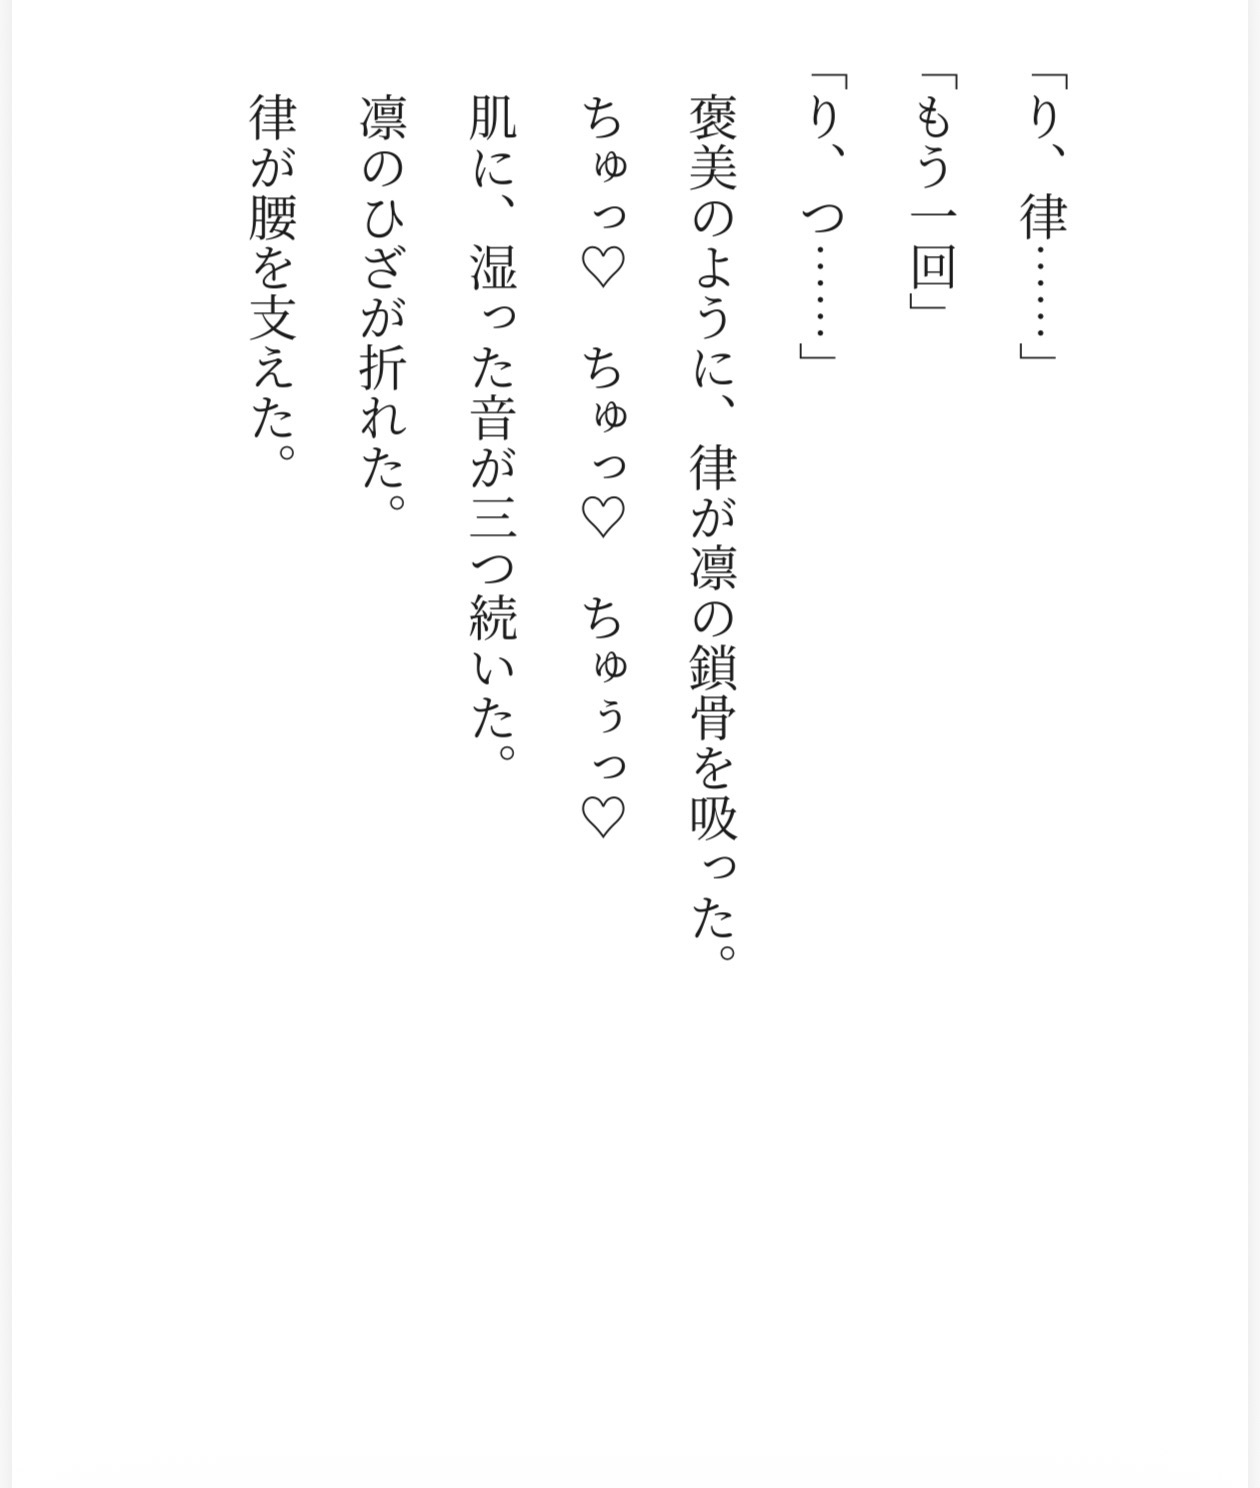 「り、律……」
「もう一回」
「り、つ……」
　褒美のように、律が凛の鎖骨を吸った。
　ちゅっ♡　ちゅっ♡　ちゅぅっ♡
　肌に、湿った音が三つ続いた。
　凛のひざが折れた。
　律が腰を支えた。